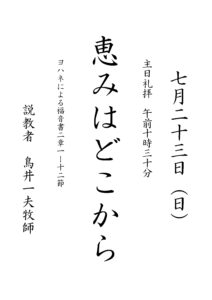 七月二十三日（日）
主日礼拝　午前十時三十分
恵みはどこから
ヨハネによる福音書二章一ー十二節
説教者　鳥井一夫牧師